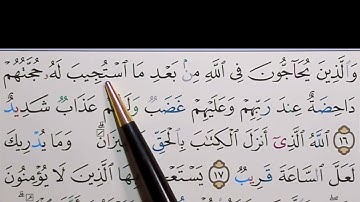 وَالَّذِينَ يُحَاجُّونَ فِي اللَّهِ مِنۢ بَعْدِ مَا اسْتُجِيبَ لَهُۥ حُجَّتُهُمْ
دَاحِضَةٌ عِندَ رَبِّهِمْ وَعَلَيْهِمْ غَضَبٌ وَلَهُمْ عَذَابٌ شَدِيدٌ
١٦ اللَّهُ الَّذِي أَنزَلَ الْكِتَٰبَ بِالْحَقِّ وَمَا يُدْرِيكَ
لَعَلَّ السَّاعَةَ قَرِيبٌ ١٧ الَّذِينَ لَا يُؤْمِنُونَ